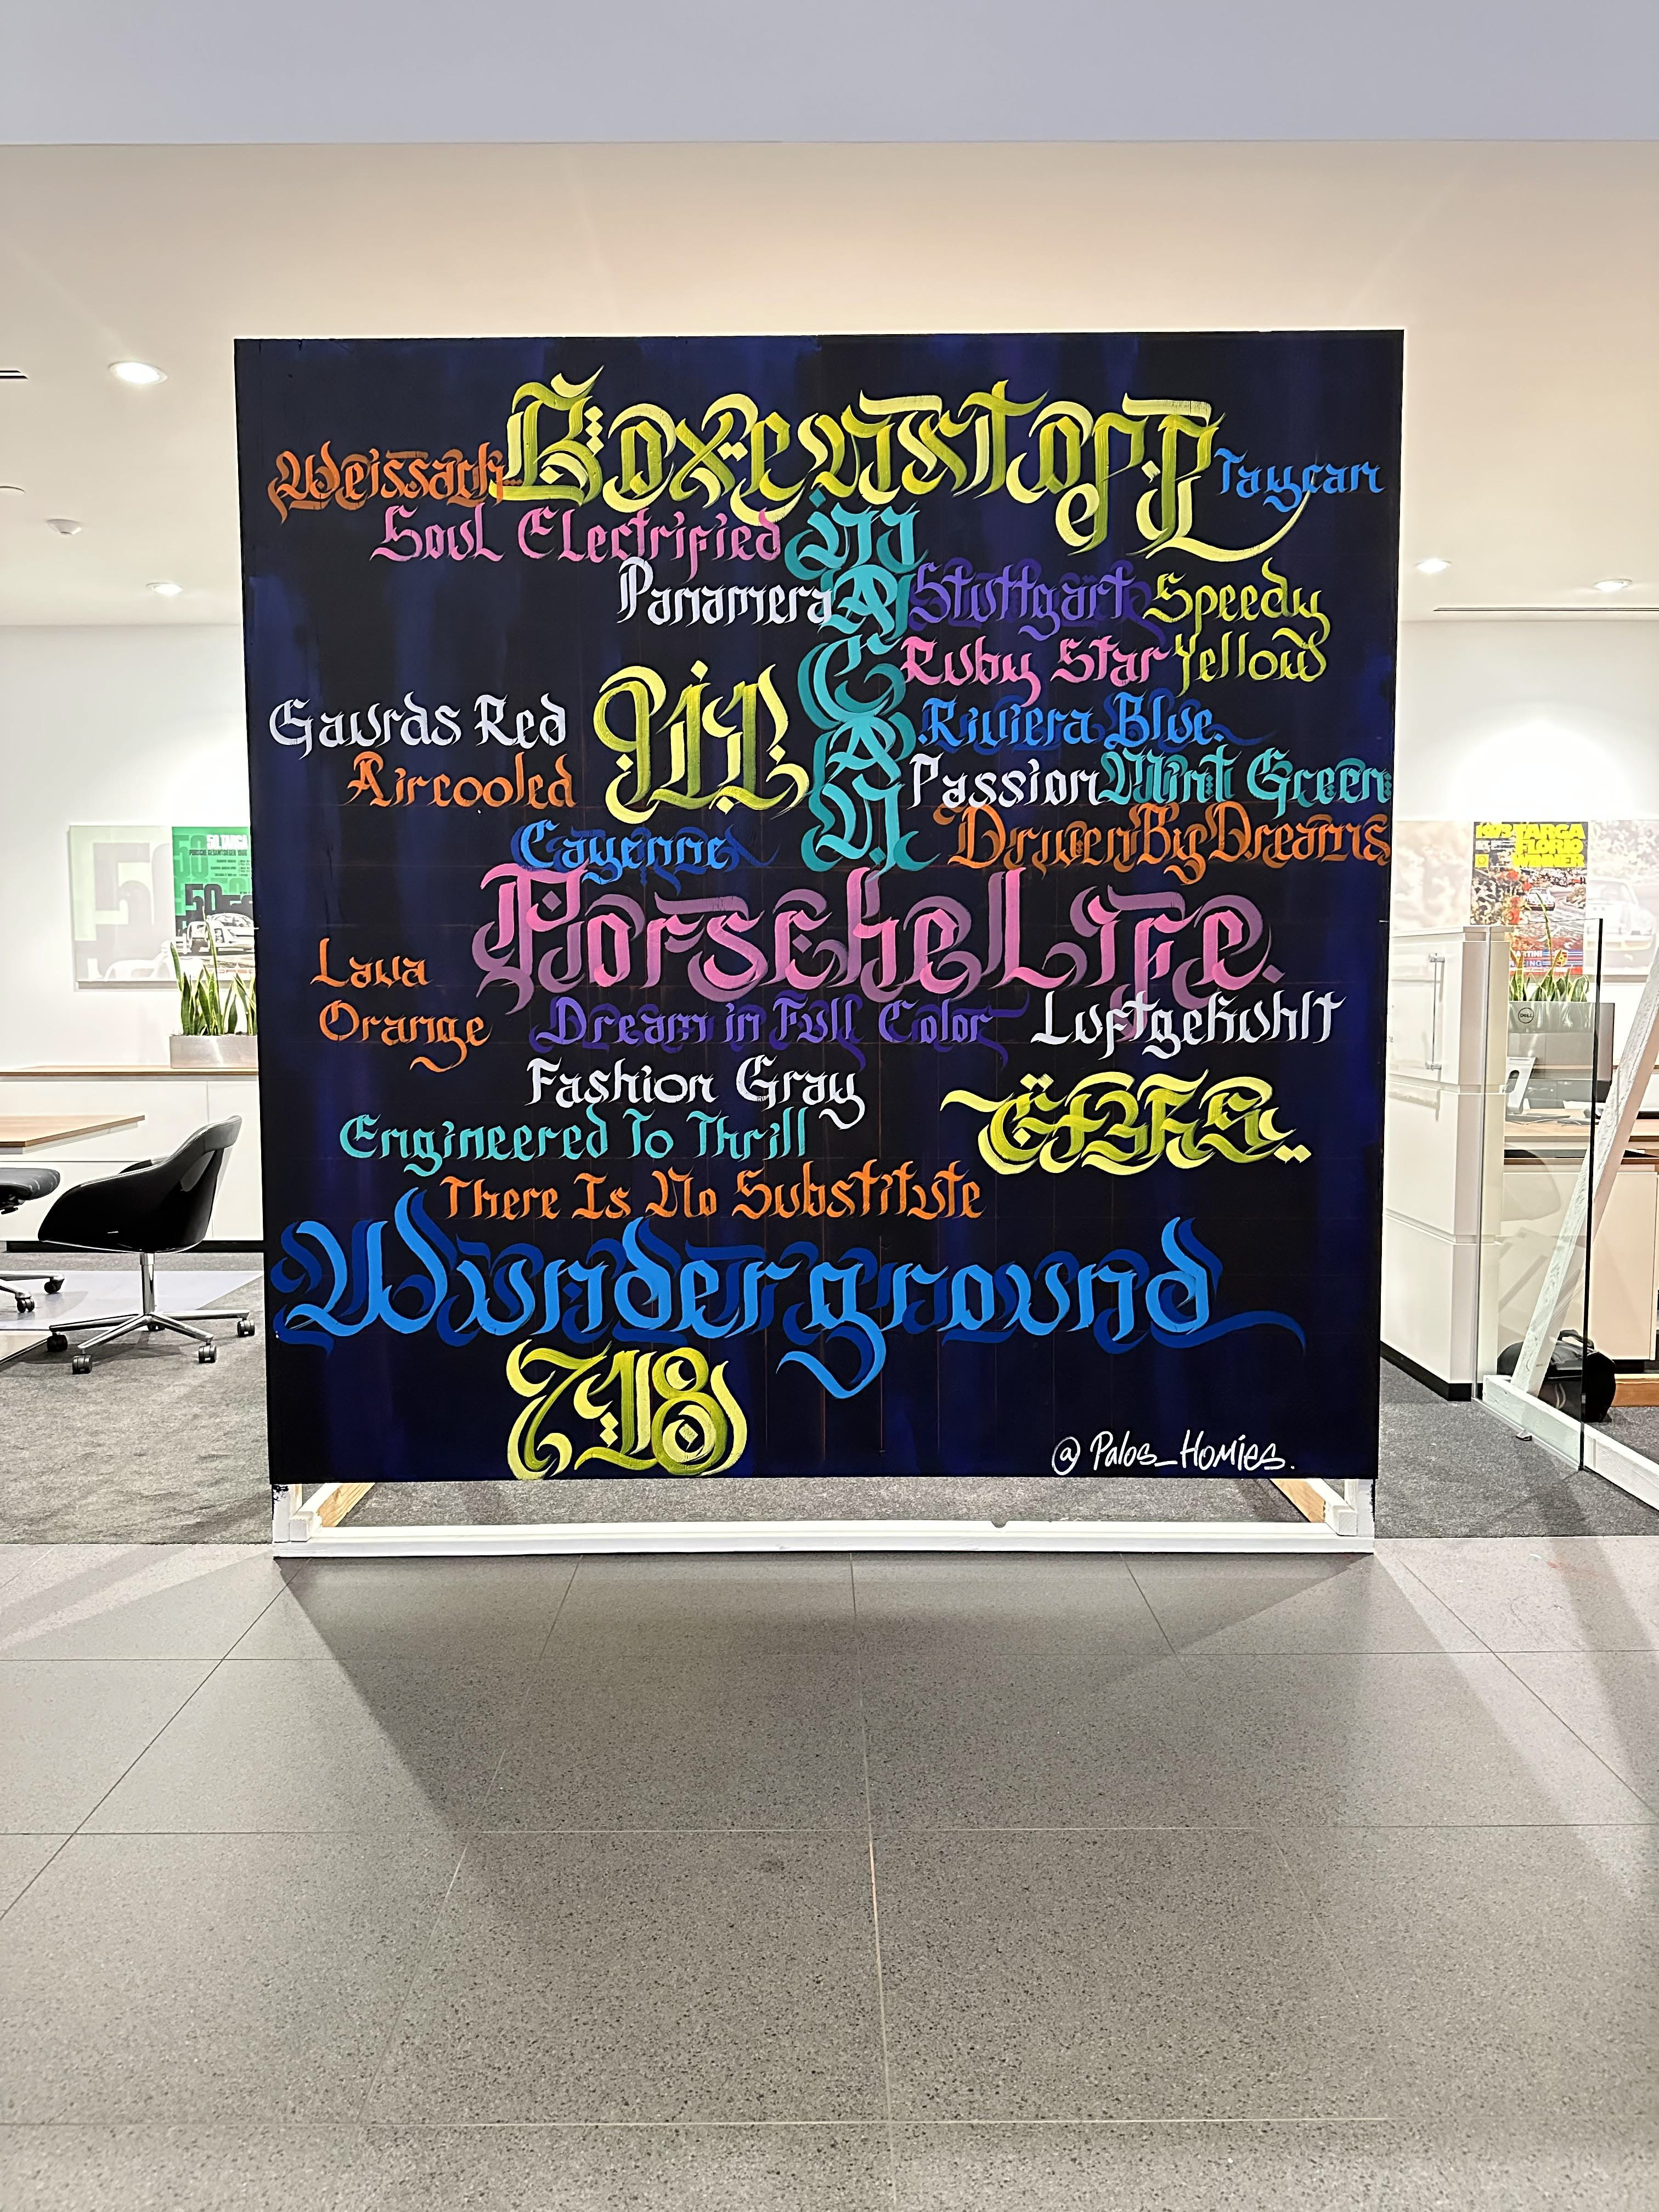 Boxenstopp
Weissach
Taycan
Soul Electrified
MACAN
Panamera
Stuttgart
Speedy
Yellow
Ruby Star
Gaurds Red
Riviera Blue.
Aircooled
Passion
Mint Green
Cayenne
DrivenByDreams
PorscheLife.
Lava
Orange
Dream in Full Color
Luftgekuhlt
Fashion Gray
Engineered To Thrill
There Is No Substitute
Wunderground
718
@Palos_Homies.
50
TARGA
FLORIO
WINNER
DELL